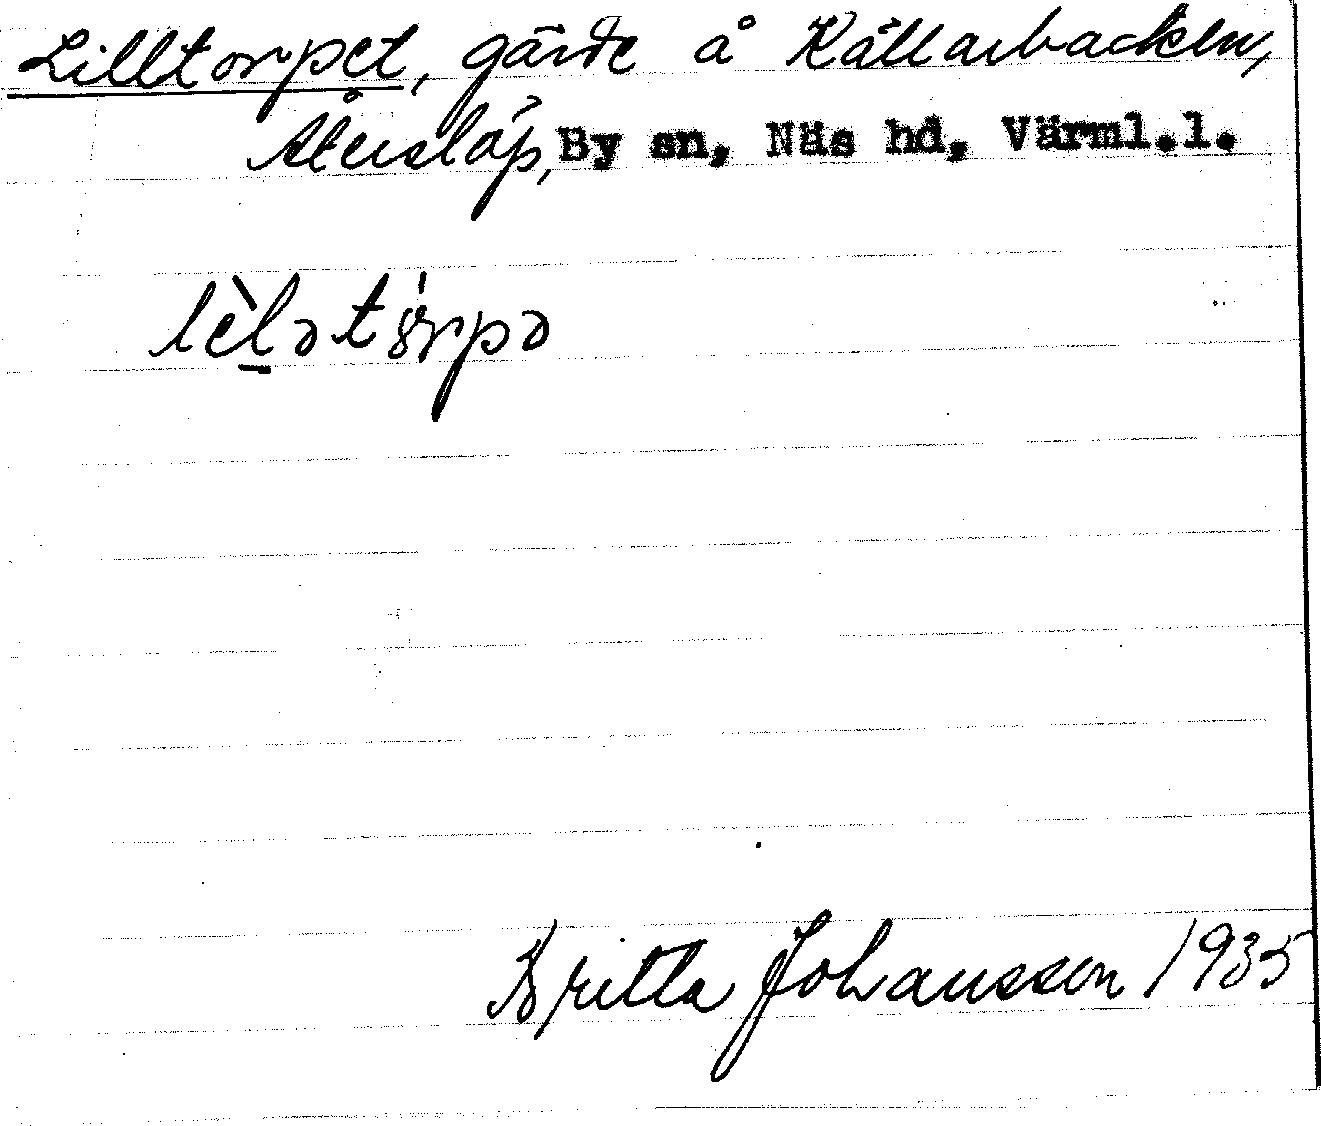 Lilltorpet, gärde å Källarbacken,
Återslöp, By sn, Näs hd, Värml.l.
lèlətŏ́rpə
Britta Johansson 1935